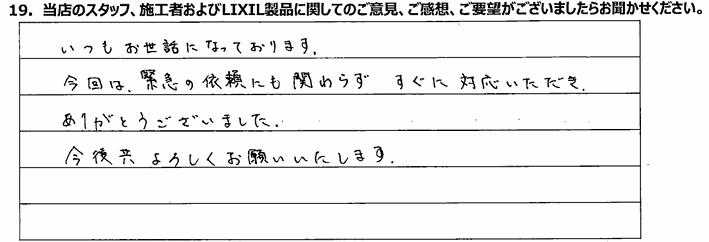 19. 当店のスタッフ、施工者およびLIXIL製品に関してのご意見、ご感想、ご要望がございましたらお聞かせください。
いつもお世話になっております.
今回は、緊急の依頼にも関わらず すぐに対応いただき.
ありがとうございました.
今後共よろしくお願いいたします.